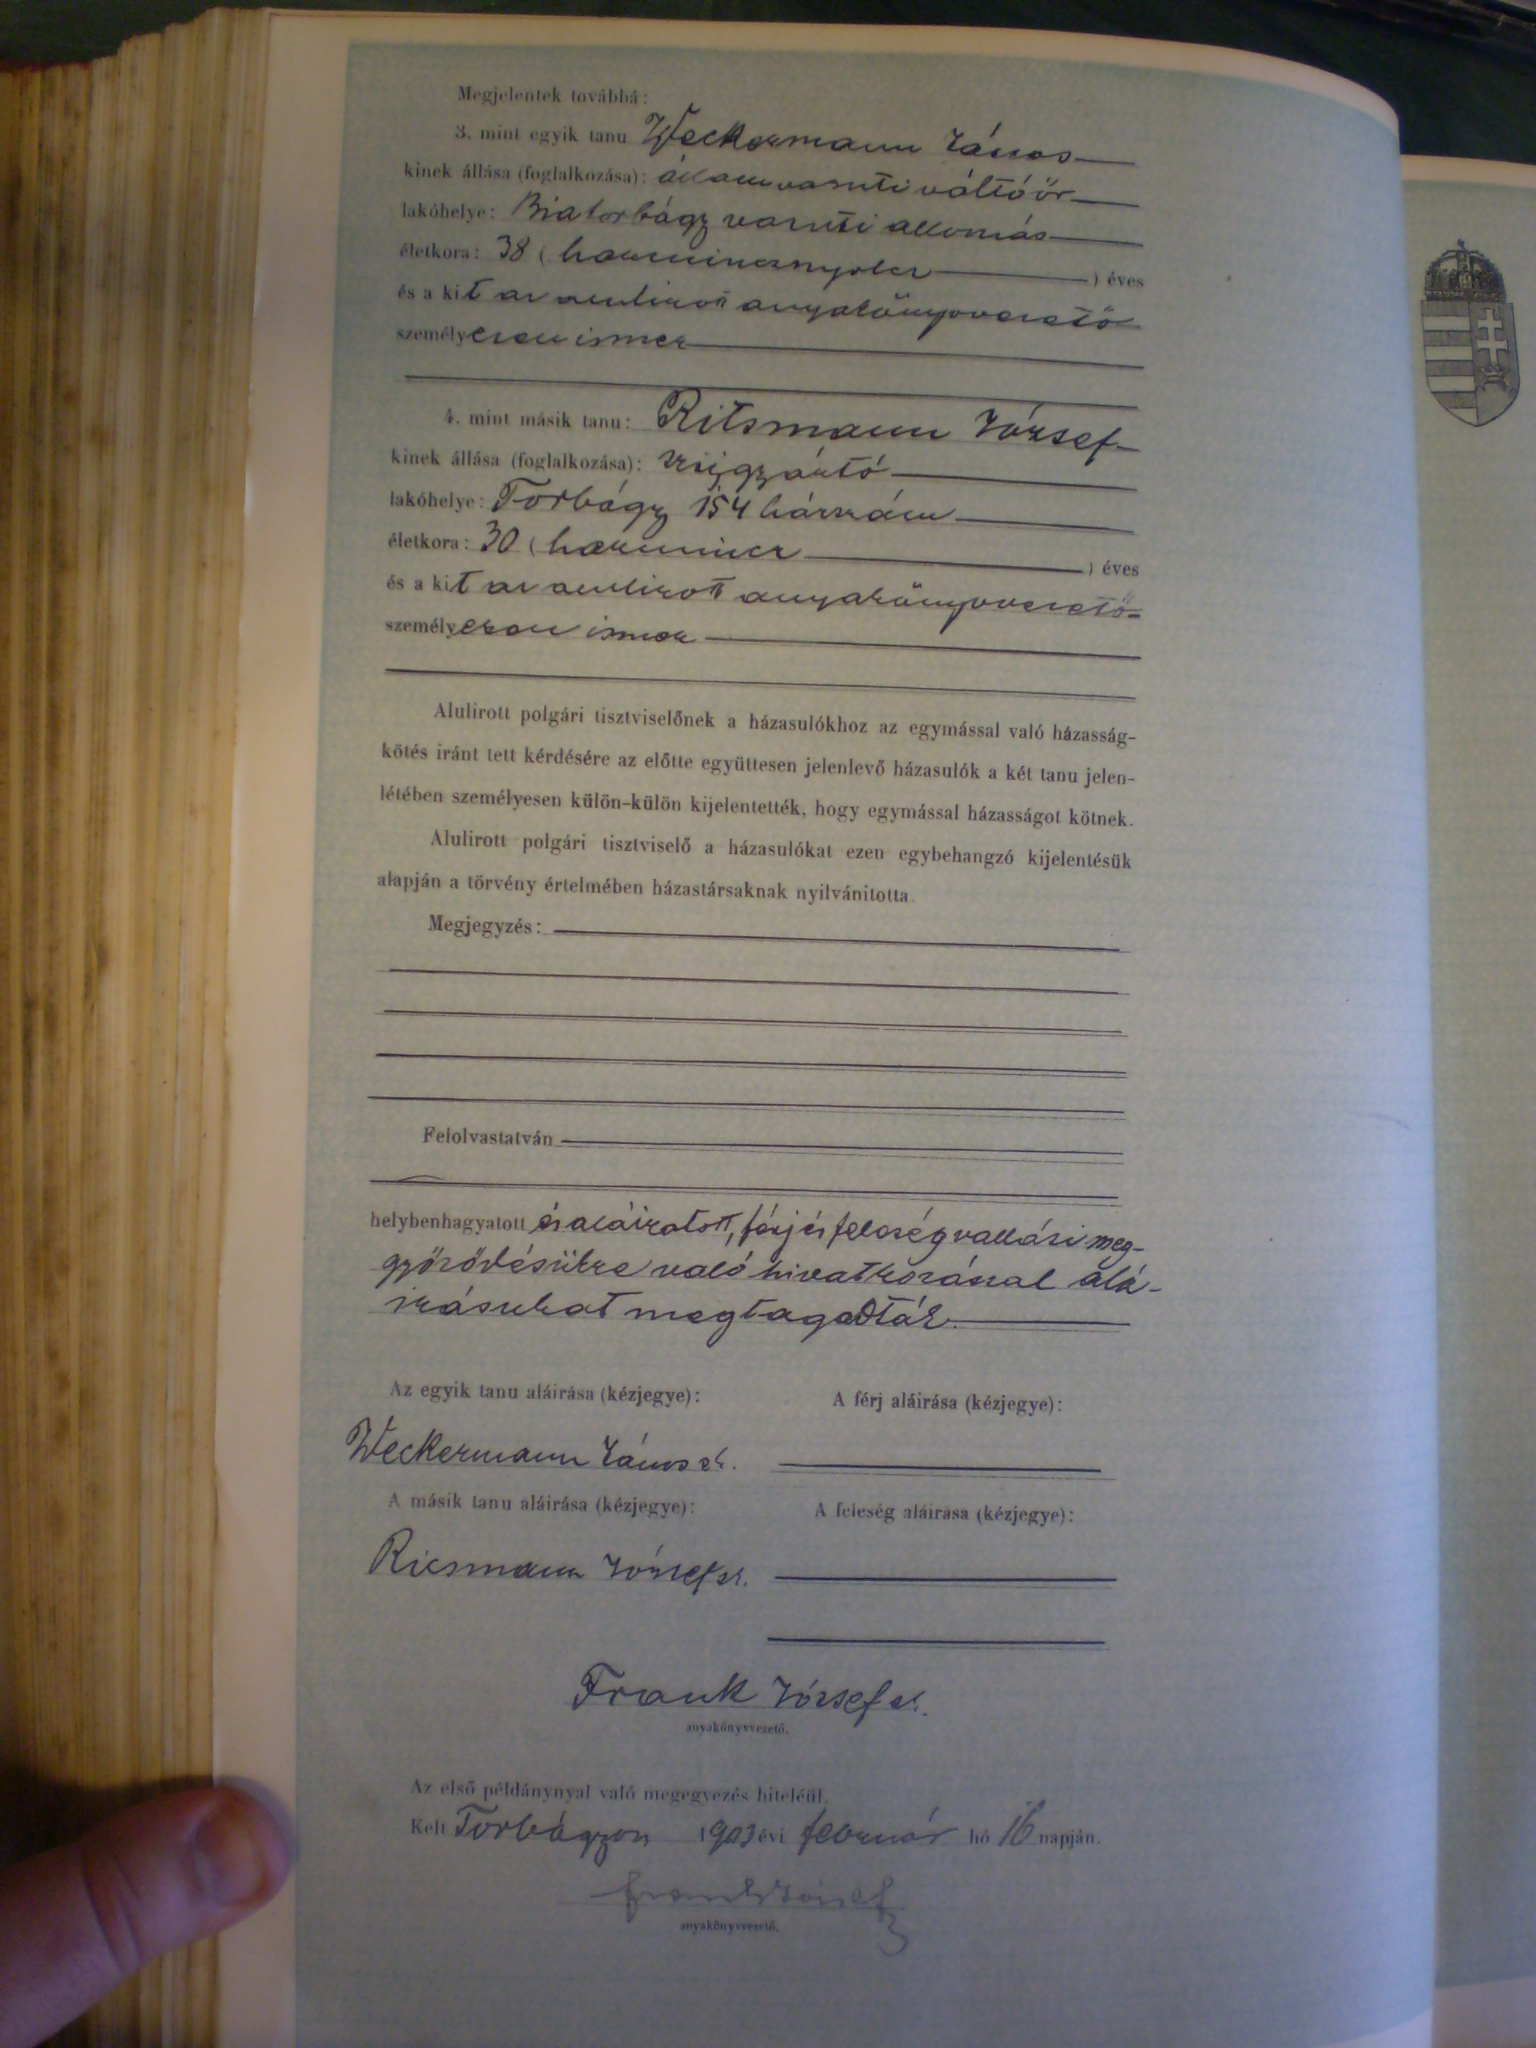 Megjelentek továbbá:
3. mint egyik tanu Weckermann János
kinek állása (foglalkozása): államvasuti váltóőr
lakóhelye: Biatorbágy vasuti állomás
életkora: 38 (harmincznyolcz) éves
és a kit az alulirott anyakönyvvezető
személyesen ismer
4. mint másik tanu: Ritsmann József
kinek állása (foglalkozása):
lakóhelye: Torbágy 154 házszám
életkora: 30 (harmincz) éves
és a kit az alulirott anyakönyvvezető
személyesen ismer
Alulirott polgári tisztviselőnek a házasulókhoz az egymással való házasság-
kötés iránt tett kérdésére az előtte együttesen jelenlevő házasulók a két tanu jelen-
létében személyesen külön-külön kijelentették, hogy egymással házasságot kötnek.
Alulirott polgári tisztviselő a házasulókat ezen egybehangzó kijelentésük
alapján a törvény értelmében házastársaknak nyilvánitotta.
Megjegyzés:
Felolvastatván
helybenhagyatott és aláiratott, férj és feleség vallási meg-
győződésükre való hivatkozással alá-
irásukat megtagadták.
Az egyik tanu aláirása (kézjegye): A férj aláirása (kézjegye):
Weckermann János sk.
A másik tanu aláirása (kézjegye): A feleség aláirása (kézjegye):
Ricsmann József sk.
Frank József sk.
anyakönyvvezető.
Az első példánynyal való megegyezés hiteléül.
Kelt Torbágyon 1903 évi február hó 16 napján.
Frank József
anyakönyvvezető.